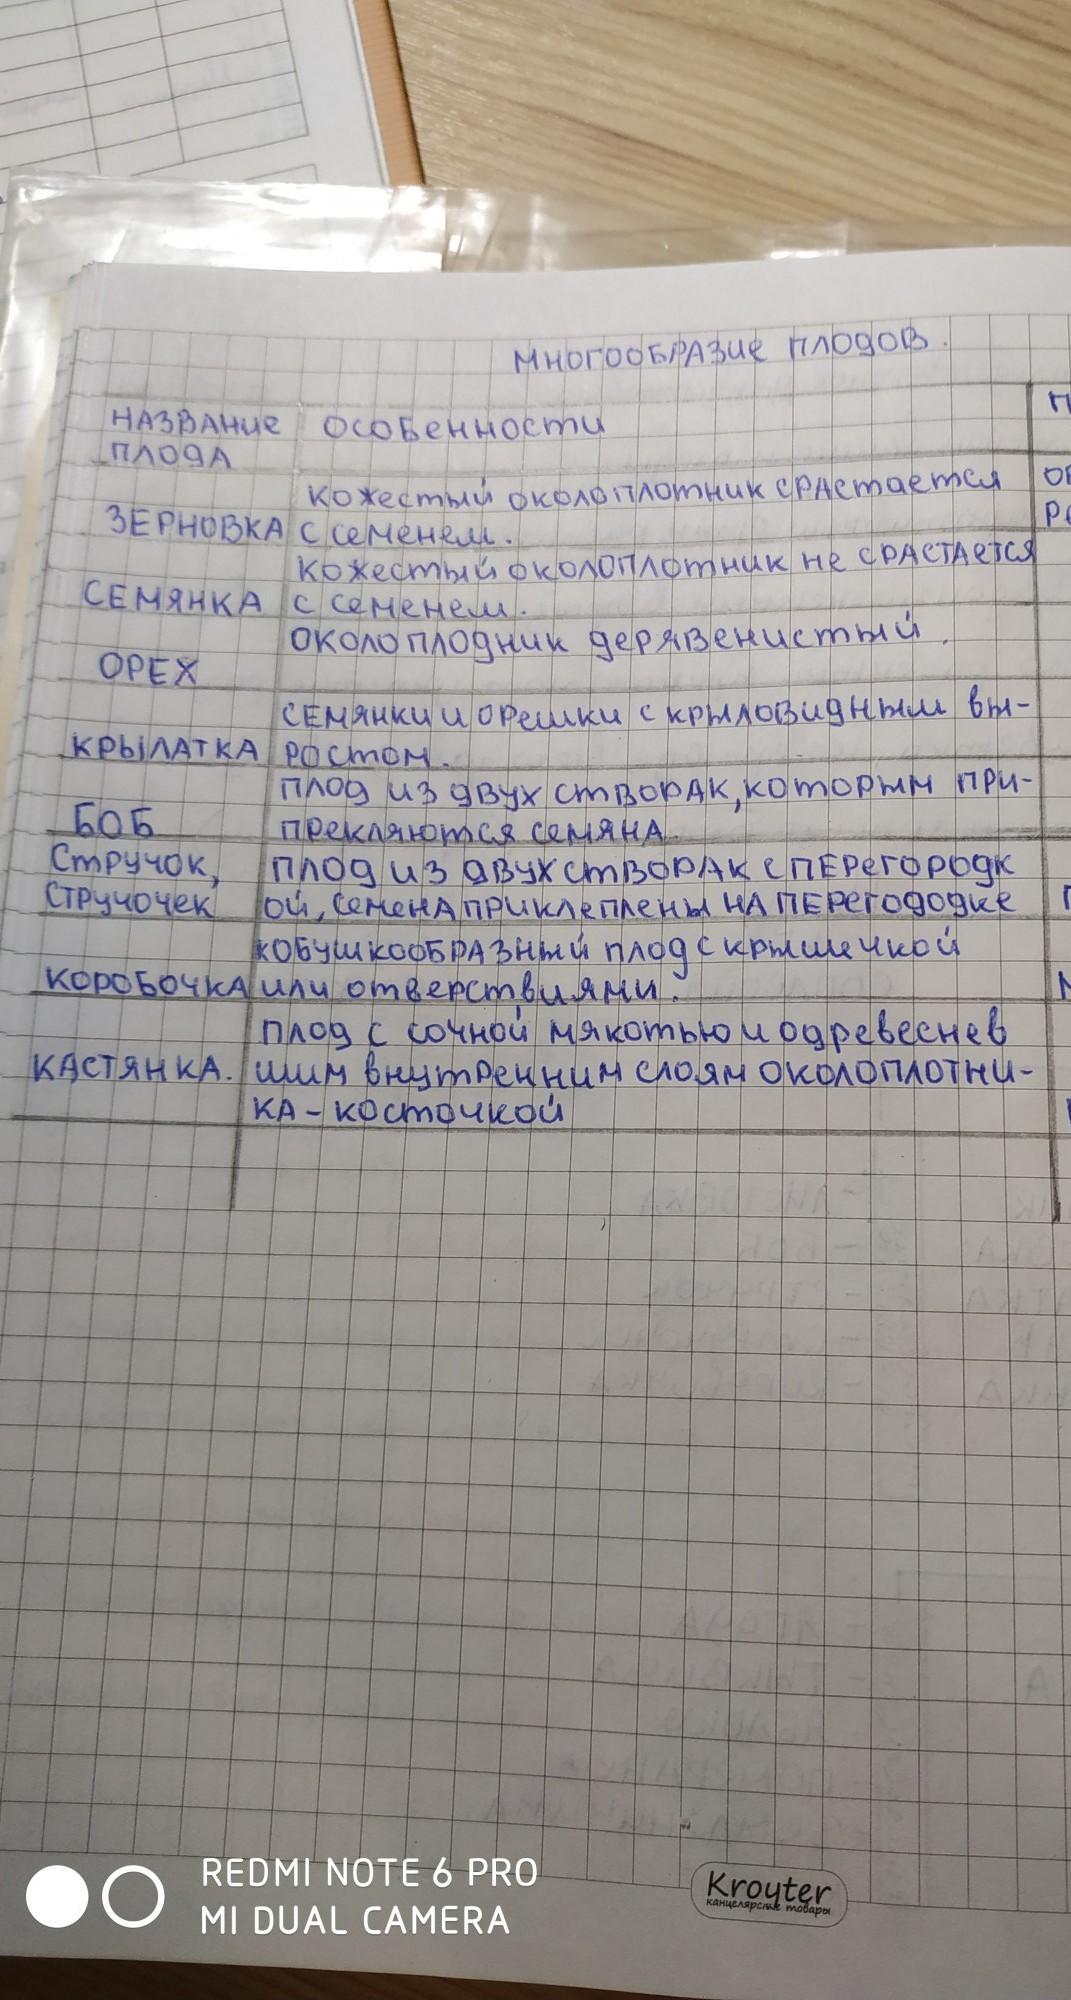 Многообразие плодов.
Название
плода
Особенности
П
Кожестый околоплотник срастается
ЗЕРНОВКА с семенем.
Кожестый околоплотник не срастается
СЕМЯНКА с семенем.
околоплодник дерявенистый.
ОРЕХ
Семянки и орешки с крыловидным вы-
КРЫЛАТКА ростом.
плод из двух створак, которым при-
БОБ прекляются семяна
Стручок, плод из двух створак с перегородк
Стручочек ой, семена приклеплены на перегододке
кобушкообразный плод с крышечкой
КОРОБОЧКА или отверствиями.
плод с сочной мякотью и одревеснев
КАСТЯНКА. шим внутренним слоям околоплотни-
ка - косточкой
REDMI NOTE 6 PRO
MI DUAL CAMERA
Kroyter
канцелярские товары